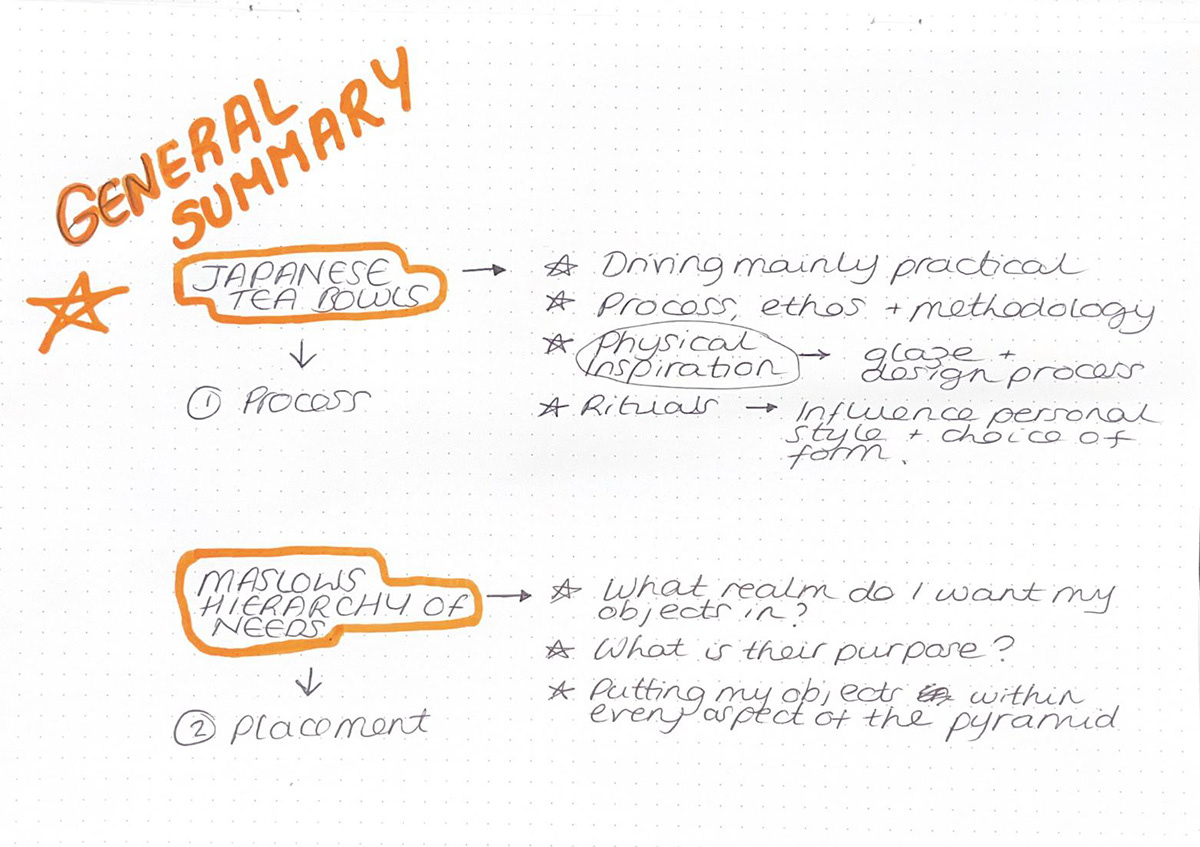 GENERAL
SUMMARY
JAPANESE
TEA BOWLS
① Process
Driving mainly practical
Process, ethos + methodology
Physical
inspiration
glaze +
design process
Rituals
Influence personal
style + choice of
form.
MASLOWS
HIERARCHY OF
NEEDS
② Placement
What realm do I want my
objects in?
What is their purpose?
Putting my objects within
every aspect of the pyramid